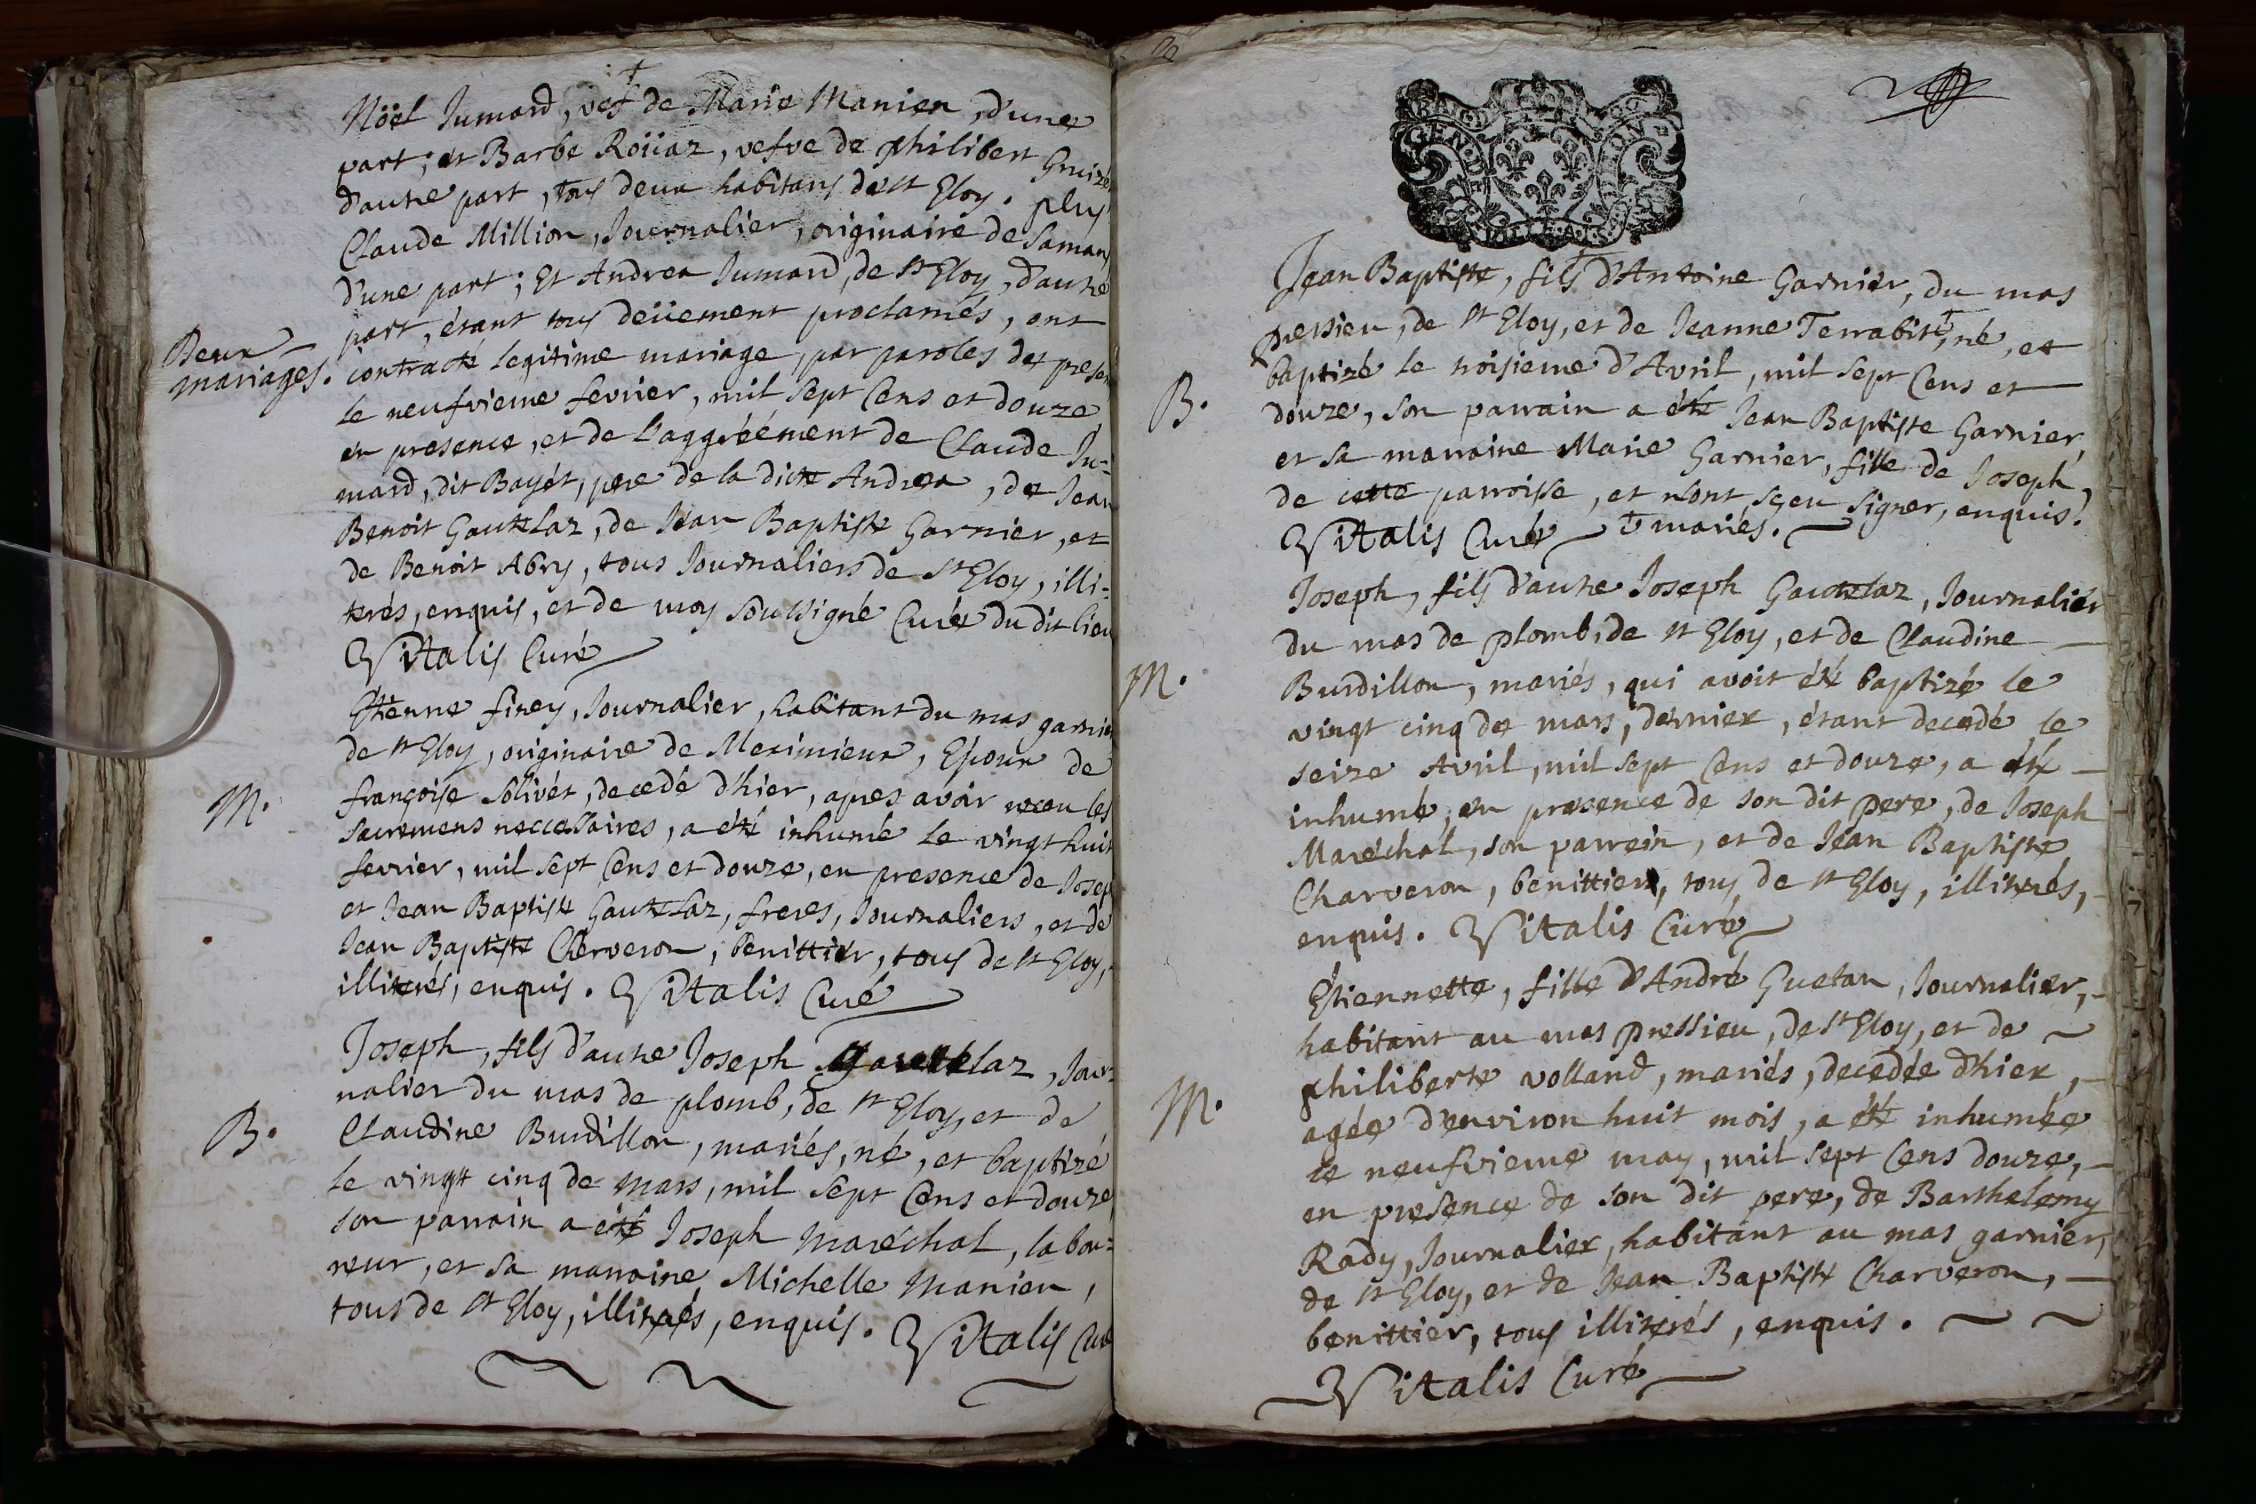 Nöel Jumard, vef de Marie Manien, d'une
part; et Barbe Roüaz, vefve de philibert
d'autre part, tous deux habitans de st Eloy. plus
Claude Million, Journalier, originaire de Saman
d'une part; Et Andrea Jumard, de st Eloy, d'autre
part, étant tous deüement proclamés, ont
Deux
mariages.
contracté legitime mariage, par paroles de presen
le neufvieme fevrier, mil sept Cens et douze
en presence, et de l'aggréement de Claude Ju=
mard, dit Bayét, pere de la dicte Andrea, de Jean
Benoit Gautelaz, de Jean Baptiste Garnier, et
de Benoit Abry, tous Journaliers de st Eloy, illi=
terés, enquis, et de moy soussigné Curé du dit lieu
Vitalis Curé
Etienne finey, Journalier, habitant du mas garnie
de st Eloy, originaire de Meximieux, Epoux de
M.
françoise Solivét, decedé d'hier, apres avoir receu les
sacremens neccessaires, a été inhumé le vingt huit
fevrier, mil sept Cens et douze, en presence de Josep
et Jean Baptiste Gautelaz, freres, Journaliers, et de
Jean Baptiste Cherveron, benittier, tous de st Eloy,
illiterés, enquis. Vitalis Curé
Joseph, fils d'autre Joseph Gautelaz, Jour=
nalier du mas de plomb, de st Eloy, et de
B.
Claudine Burdillon, mariés, né, et baptizé
le vingt cinq de mars, mil sept Cens et douze
son parrain a été Joseph Maréchal, labou=
reur, et sa marraine Michelle Manien,
tous de st Eloy, illiterés, enquis. Vitalis Curé
Jean Baptiste, fils d'Antoine Garnier, du mas
pressieu, de st Eloy, et de Jeanne Terrabit, né, et
baptizé le troisieme d'Avril, mil sept Cens et
B.
douze, son parrain a été Jean Baptiste Garnier,
et sa marraine Marie Garnier, fille de Joseph,
de cette parroisse, et n'ont sçeu signer, enquis.
Vitalis Curé † mariés.
Joseph, fils d'autre Joseph Gautelaz, Journalier
du mas de plomb, de st Eloy, et de Claudine
M.
Burdillon, mariés, qui avoit été baptizé le
vingt cinq de mars, dernier, étant decedé le
seize Avril, mil sept Cens et douze, a été
inhumé, en presence de son dit pere, de Joseph
Maréchal, son parrein, et de Jean Baptiste
Charveron, benittier, tous de st Eloy, illiterés,
enquis. Vitalis Curé
Etiennette, fille d'André Guetan, Journalier,
habitant au mas pressieu, de st Eloy, et de
philiberte volland, mariés, decedée d'hier,
M.
agée d'environ huit mois, a été inhumée
le neufvieme may, mil sept Cens douze,
en presence de son dit pere, de Barthelemy
Rady, Journalier, habitant au mas garnier,
de st Eloy, et de Jean Baptiste Charveron,
benittier, tous illiterés, enquis.
Vitalis Curé